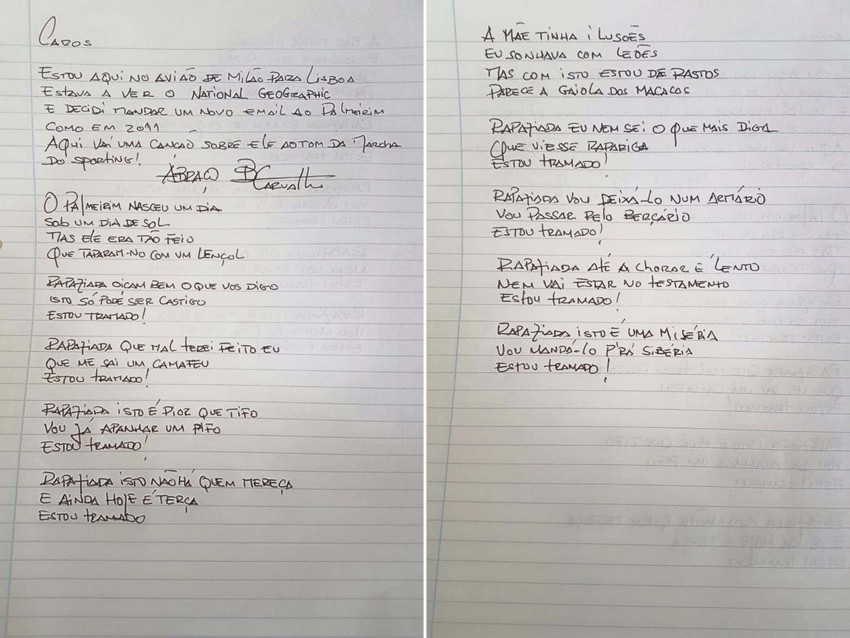 Caros
Estou aqui no avião de Milão para Lisboa
Estava a ver o National Geographic
e decidi mandar um novo email ao Palmeirim
como em 2011
Aqui vai uma canção sobre ele ao tom da Marcha
do Sporting!
Abraço B Carvalho
O Palmeirim nasceu um dia
sob um dia de sol
mas ele era tão feio
que taparam-no com um lençol
Rapaziada oicam bem o que vos digo
isto só pode ser castigo
Estou tramado!
Rapaziada que mal terei feito eu
que me sai um camafeu
Estou tramado!
Rapaziada isto é pior que tifo
vou já apanhar um pifo
Estou tramado!
Rapaziada isto não há quem mereça
e ainda hoje é terça
Estou tramado
A mãe tinha ilusões
eu sonhava com leões
mas com isto estou de rastos
parece a gaiola dos macacos
Rapaziada eu nem sei o que mais diga
que viesse rapariga
Estou tramado!
Rapaziada vou deixá-lo num armário
vou passar pelo berçário
Estou tramado!
Rapaziada até a chorar é lento
nem vai estar no testamento
Estou tramado!
Rapaziada isto é uma miséria
vou mandá-lo p'rá Sibéria
Estou tramado!